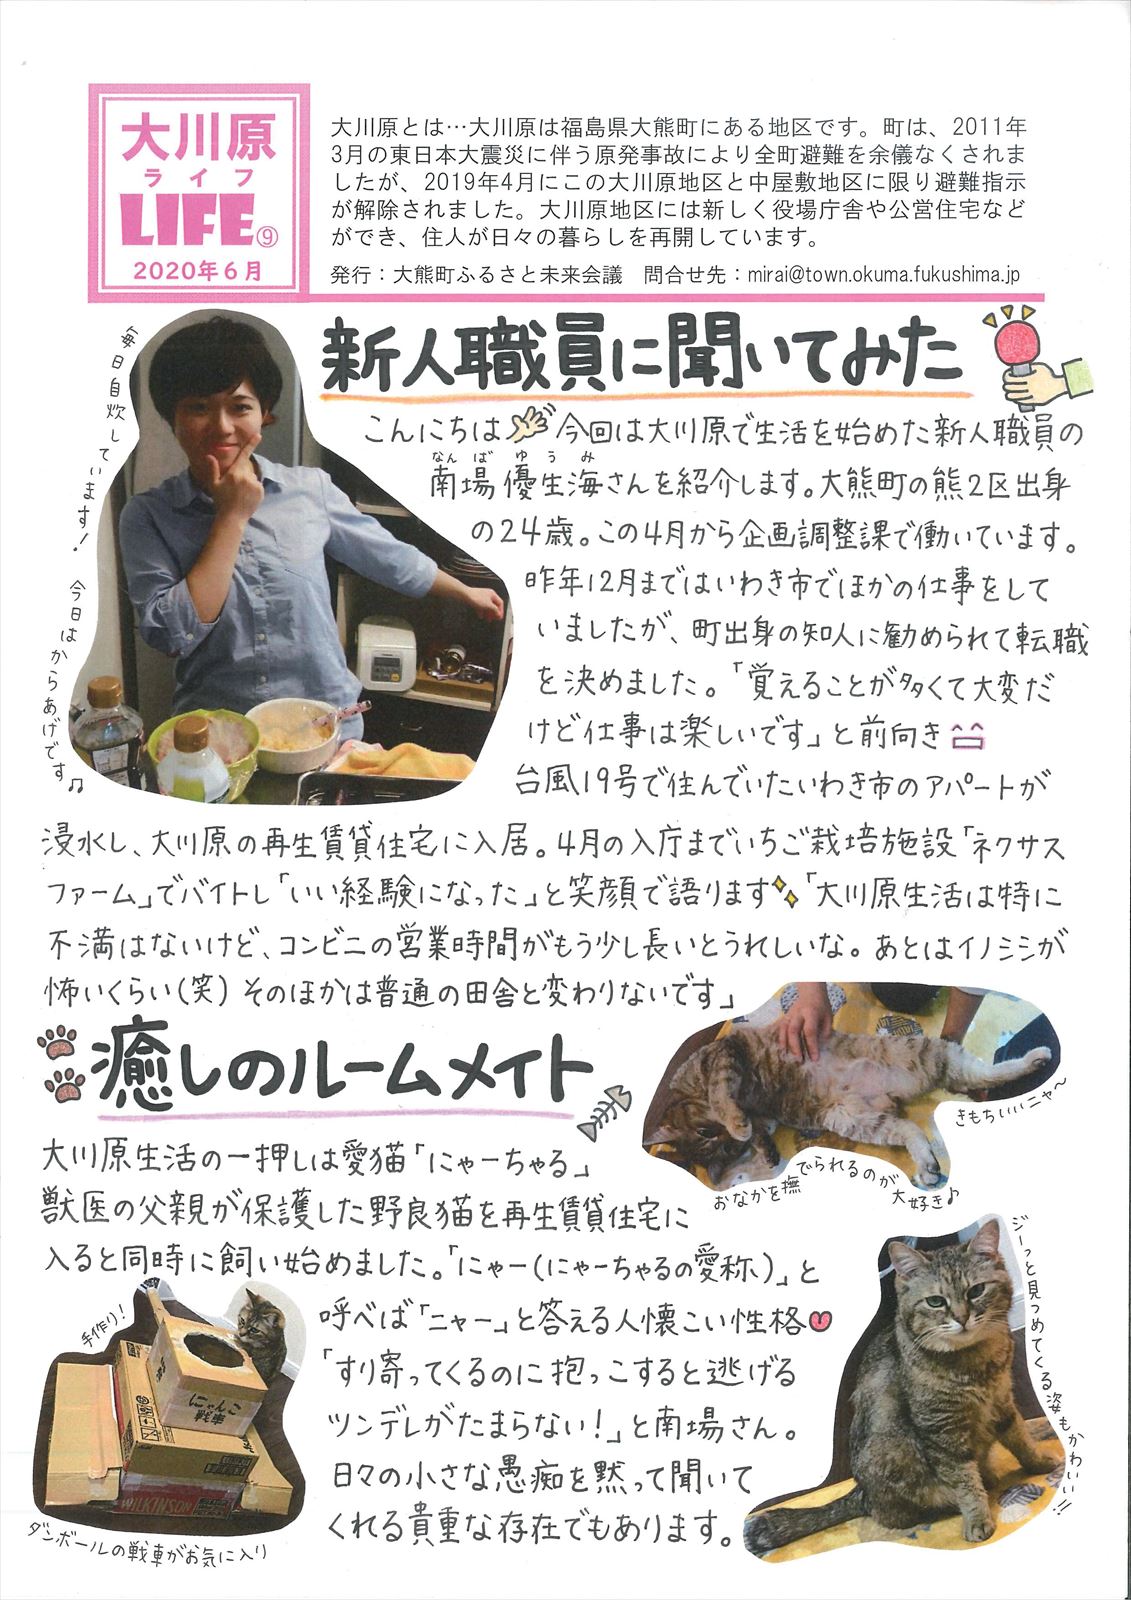 大川原
ライフ
LIFE⑨
2020年6月
大川原とは…大川原は福島県大熊町にある地区です。町は、2011年
3月の東日本大震災に伴う原発事故により全町避難を余儀なくされま
したが、2019年4月にこの大川原地区と中屋敷地区に限り避難指示
が解除されました。大川原地区には新しく役場庁舎や公営住宅など
ができ、住人が日々の暮らしを再開しています。
発行：大熊町ふるさと未来会議　問合せ先：mirai@town.okuma.fukushima.jp
新人職員に聞いてみた
毎日自炊しています！
今日はからあげです♫
こんにちは 今回は大川原で生活を始めた新人職員の
なんば ゆうみ
南場優生海さんを紹介します。大熊町の熊2区出身
の24歳。この4月から企画調整課で働いています。
昨年12月まではいわき市でほかの仕事をして
いましたが、町出身の知人に勧められて転職
を決めました。「覚えることが多くて大変だ
けど仕事は楽しいです」と前向き
台風19号で住んでいたいわき市のアパートが
浸水し、大川原の再生賃貸住宅に入居。4月の入庁までいちご栽培施設「ネクサス
ファーム」でバイトし「いい経験になった」と笑顔で語ります「大川原生活は特に
不満はないけど、コンビニの営業時間がもう少し長いとうれしいな。あとはイノシシが
怖いくらい(笑) そのほかは普通の田舎と変わりないです」
癒しのルームメイト
きもちいいニャ〜
おなかを撫でられるのが
大好き♪
大川原生活の一押しは愛猫「にゃーちゃる」
獣医の父親が保護した野良猫を再生賃貸住宅に
入ると同時に飼い始めました。「にゃー(にゃーちゃるの愛称)」と
呼べば「ニャー」と答える人懐こい性格
「すり寄ってくるのに抱っこすると逃げる
ツンデレがたまらない！」と南場さん。
日々の小さな愚痴を黙って聞いて
くれる貴重な存在でもあります。
手作り！
にゃんこ
戦車
WILKINSON
ダンボールの戦車がお気に入り
ジーっと見つめてくる姿もかわいい!!